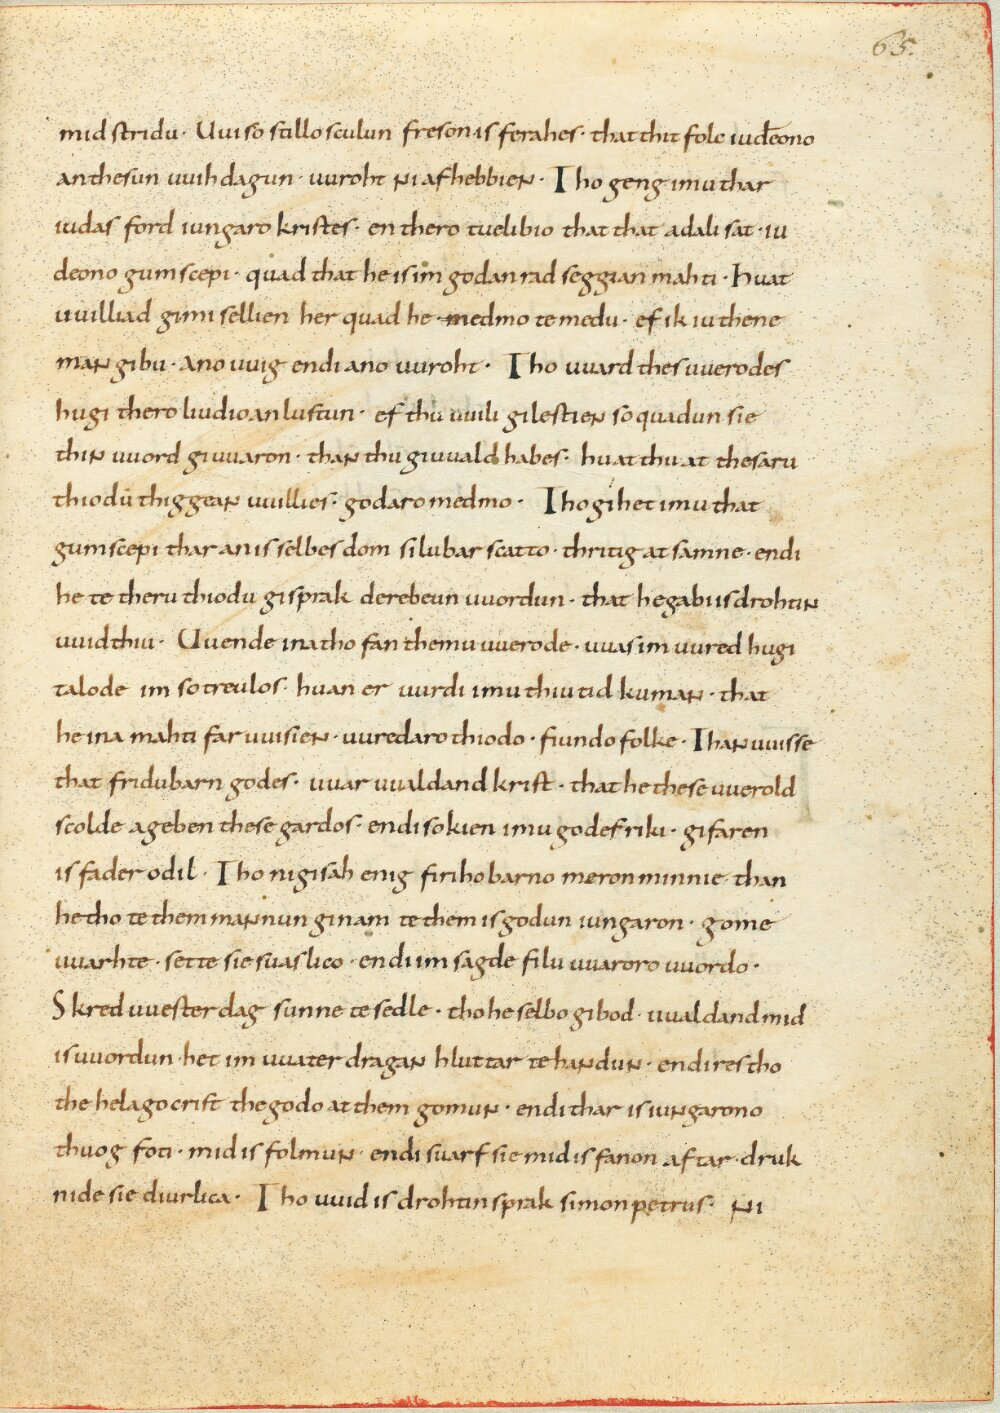 65.
mid stridu · Uui so stillo sculun freson is ferahes · that thit folc iudeono
an thesun uuihdagun · uuroht ni afhebbien · Tho geng imu thar
iudas ford iungaro kristes · en thero tuelibio that that adali sat · iu
deono gumscepi · quad that he is im godan rad seggian mahti · huat
uuilliad gi mi sellien her quad he · medmo te medu · ef ik iu thene
man gibu · ano uuig endi ano uuroht · Tho uuard thes uuerodes
hugi thero liudio an lustun · ef thu uuili gilestien so quadun sie
thin uuord giuuaron · than thu giuuald habes · huat thu at thesaru
thiodu thiggean uuillies · godaro medmo · Tho gihet imu that
gumscepi thar an is selbes dom silubarscatto · thritig atsamne · endi
he te theru thiodu gisprak derebeun uuordun · that he gabi is drohtin
uuid thiu · Uuende ina tho fan themu uuerode · uuas im uured hugi
talode im so treulos · huan er uurdi imu thiu tid kuman · that
he ina mahti faruuisien · uuredaro thiodo · fiundo folke · Than uuisse
that fridubarn godes · uuar uualdand krist · that he these uuerold
scolde ageben these gardos · endi sokien imu godes riki · gifaren
is faderodil · Tho ni gisah enig firiho barno meron minnie · than
he tho te them mannun ginam te them is godun iungaron · gome
uuarhte · sette sie suaslico · endi im sagde filu uuaroro uuordo ·
Skred uuester dag sunne te sedle · tho he selbo gibod · uualdand mid
is uuordun · het im uuater dragan hluttar te handun · endi res tho
the helago crist the godo at them gomun · endi thar is iungarono
thuog foti · mid is folmun · endi suarf sie mid is fanon aftar · druk
nide sie diurlica · Tho uuid is drohtin sprak simon petrus · ni